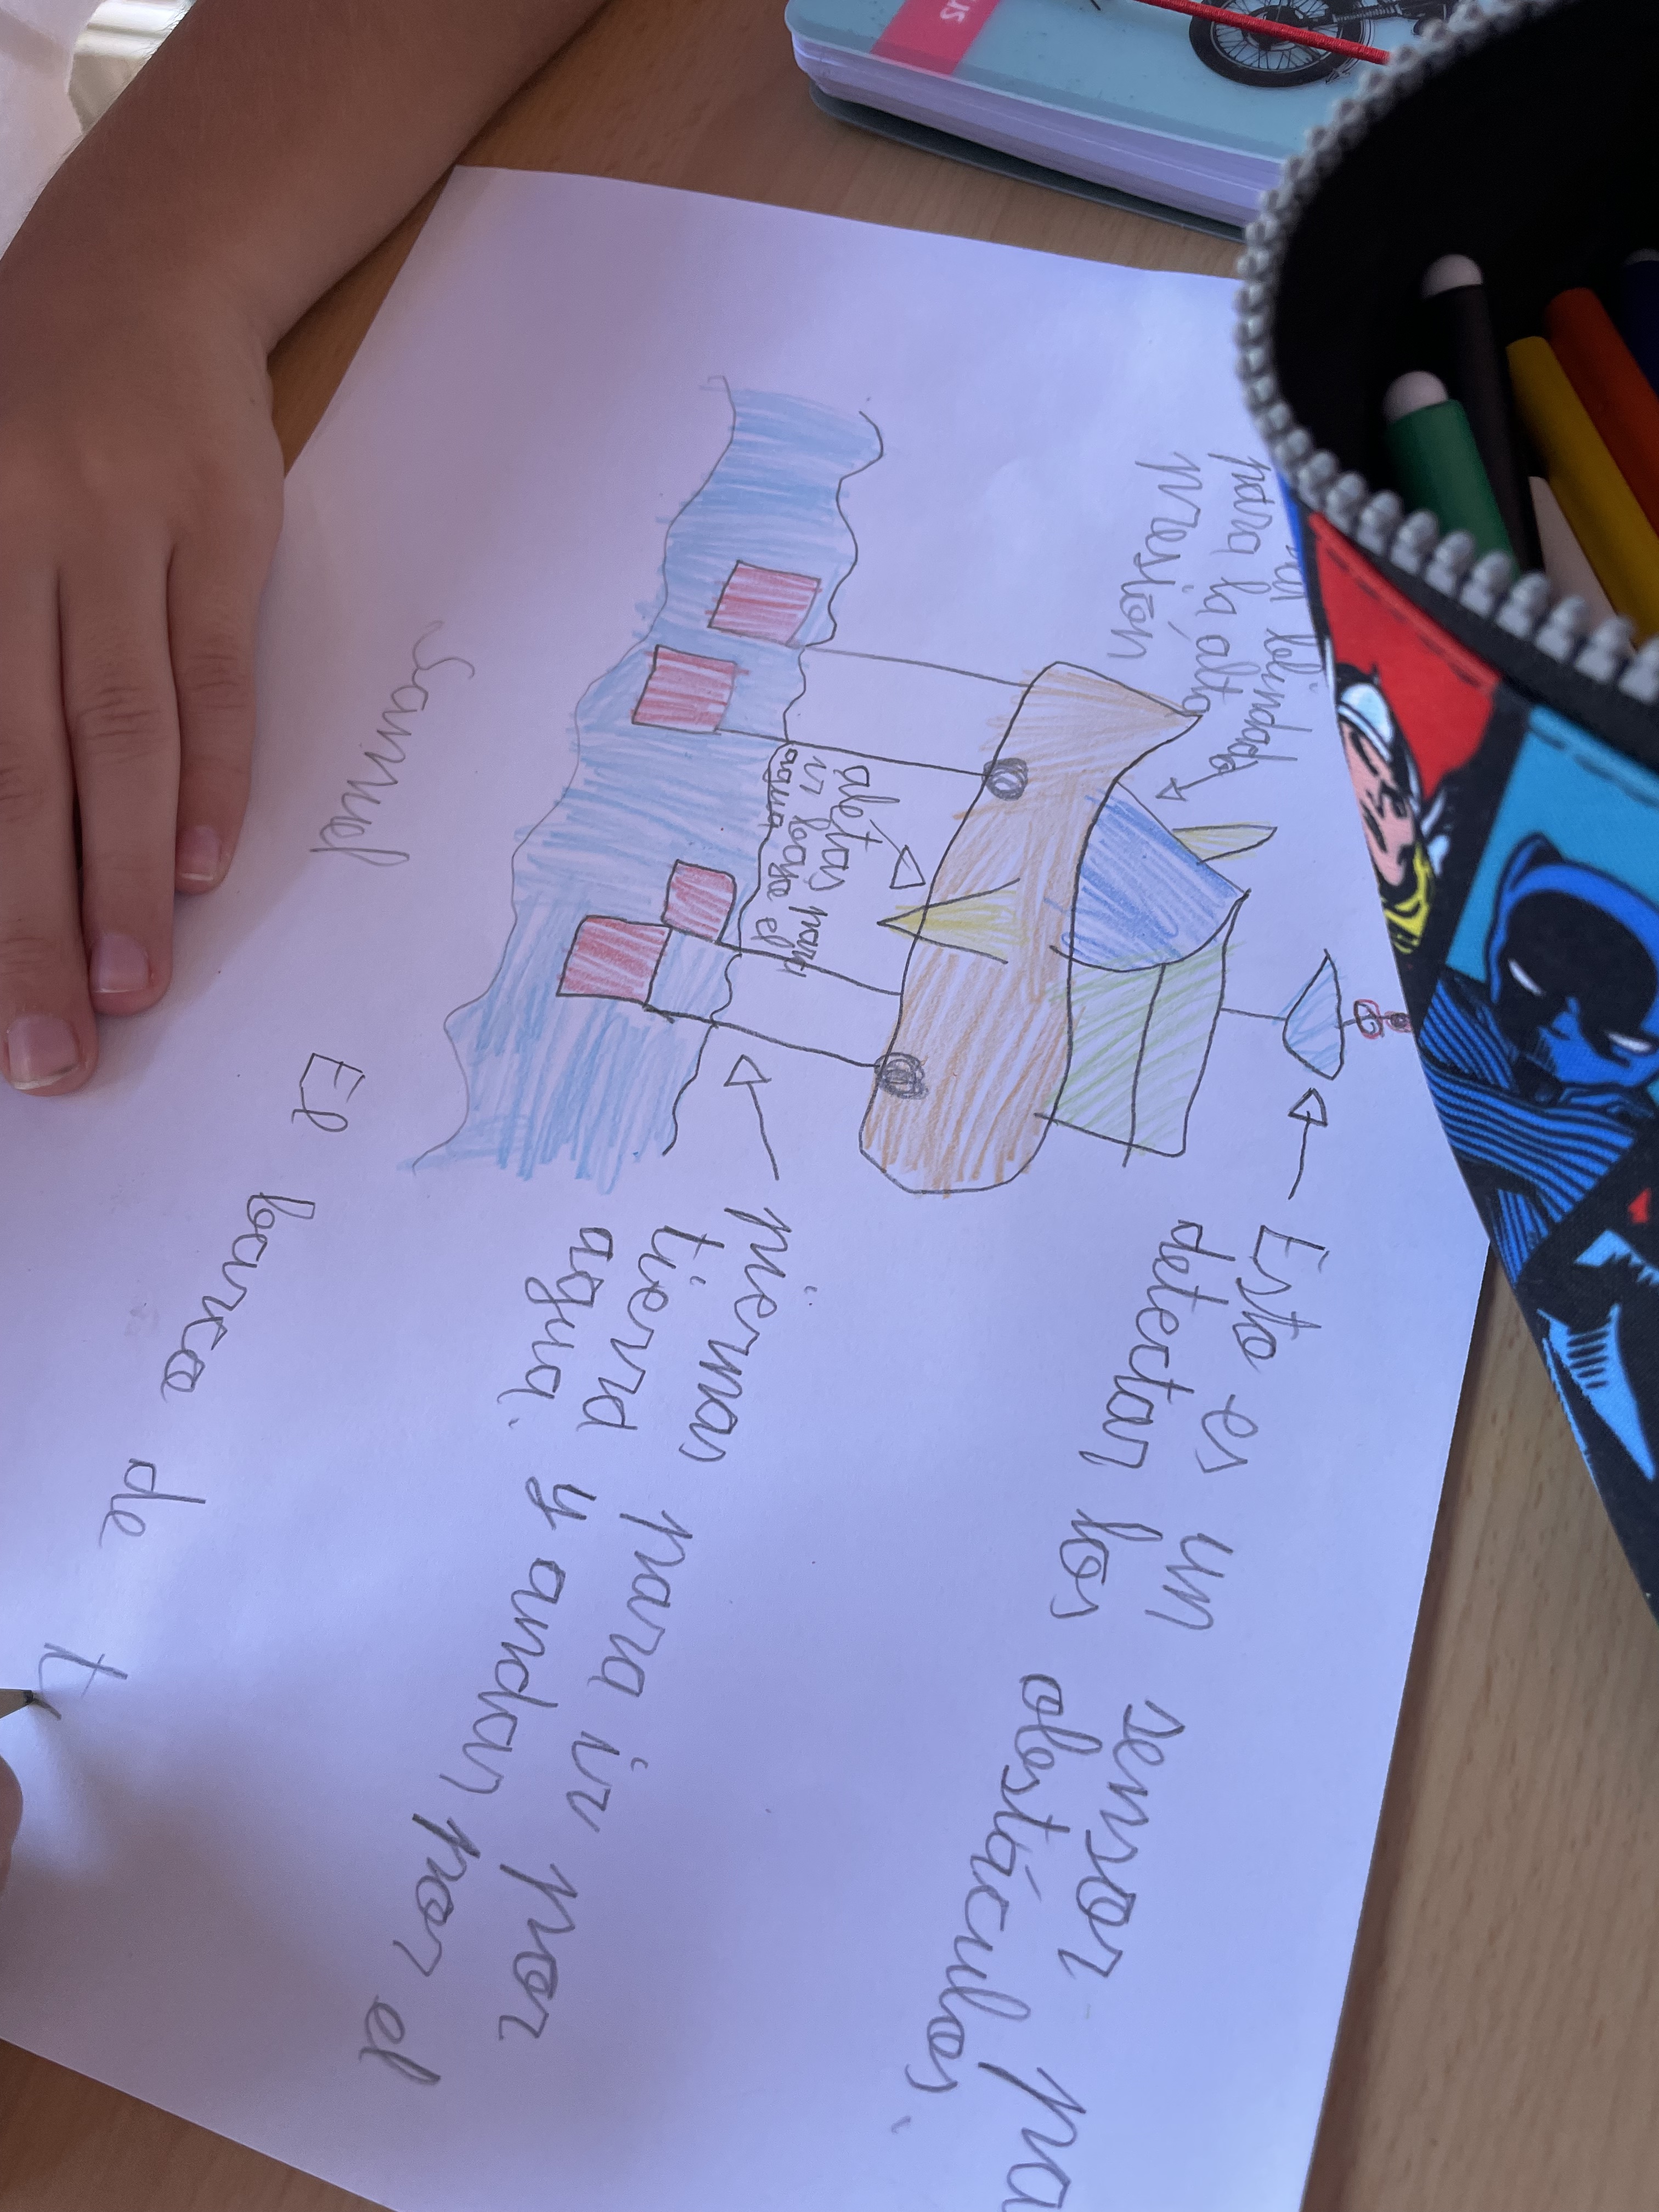 para la alta
presión
Esto es un sensor pa
detectar los obstáculos.
aletas para
ir bajo el
agua
piernas para ir por
tierra y andar por el
agua.
Samuel
El barco de t